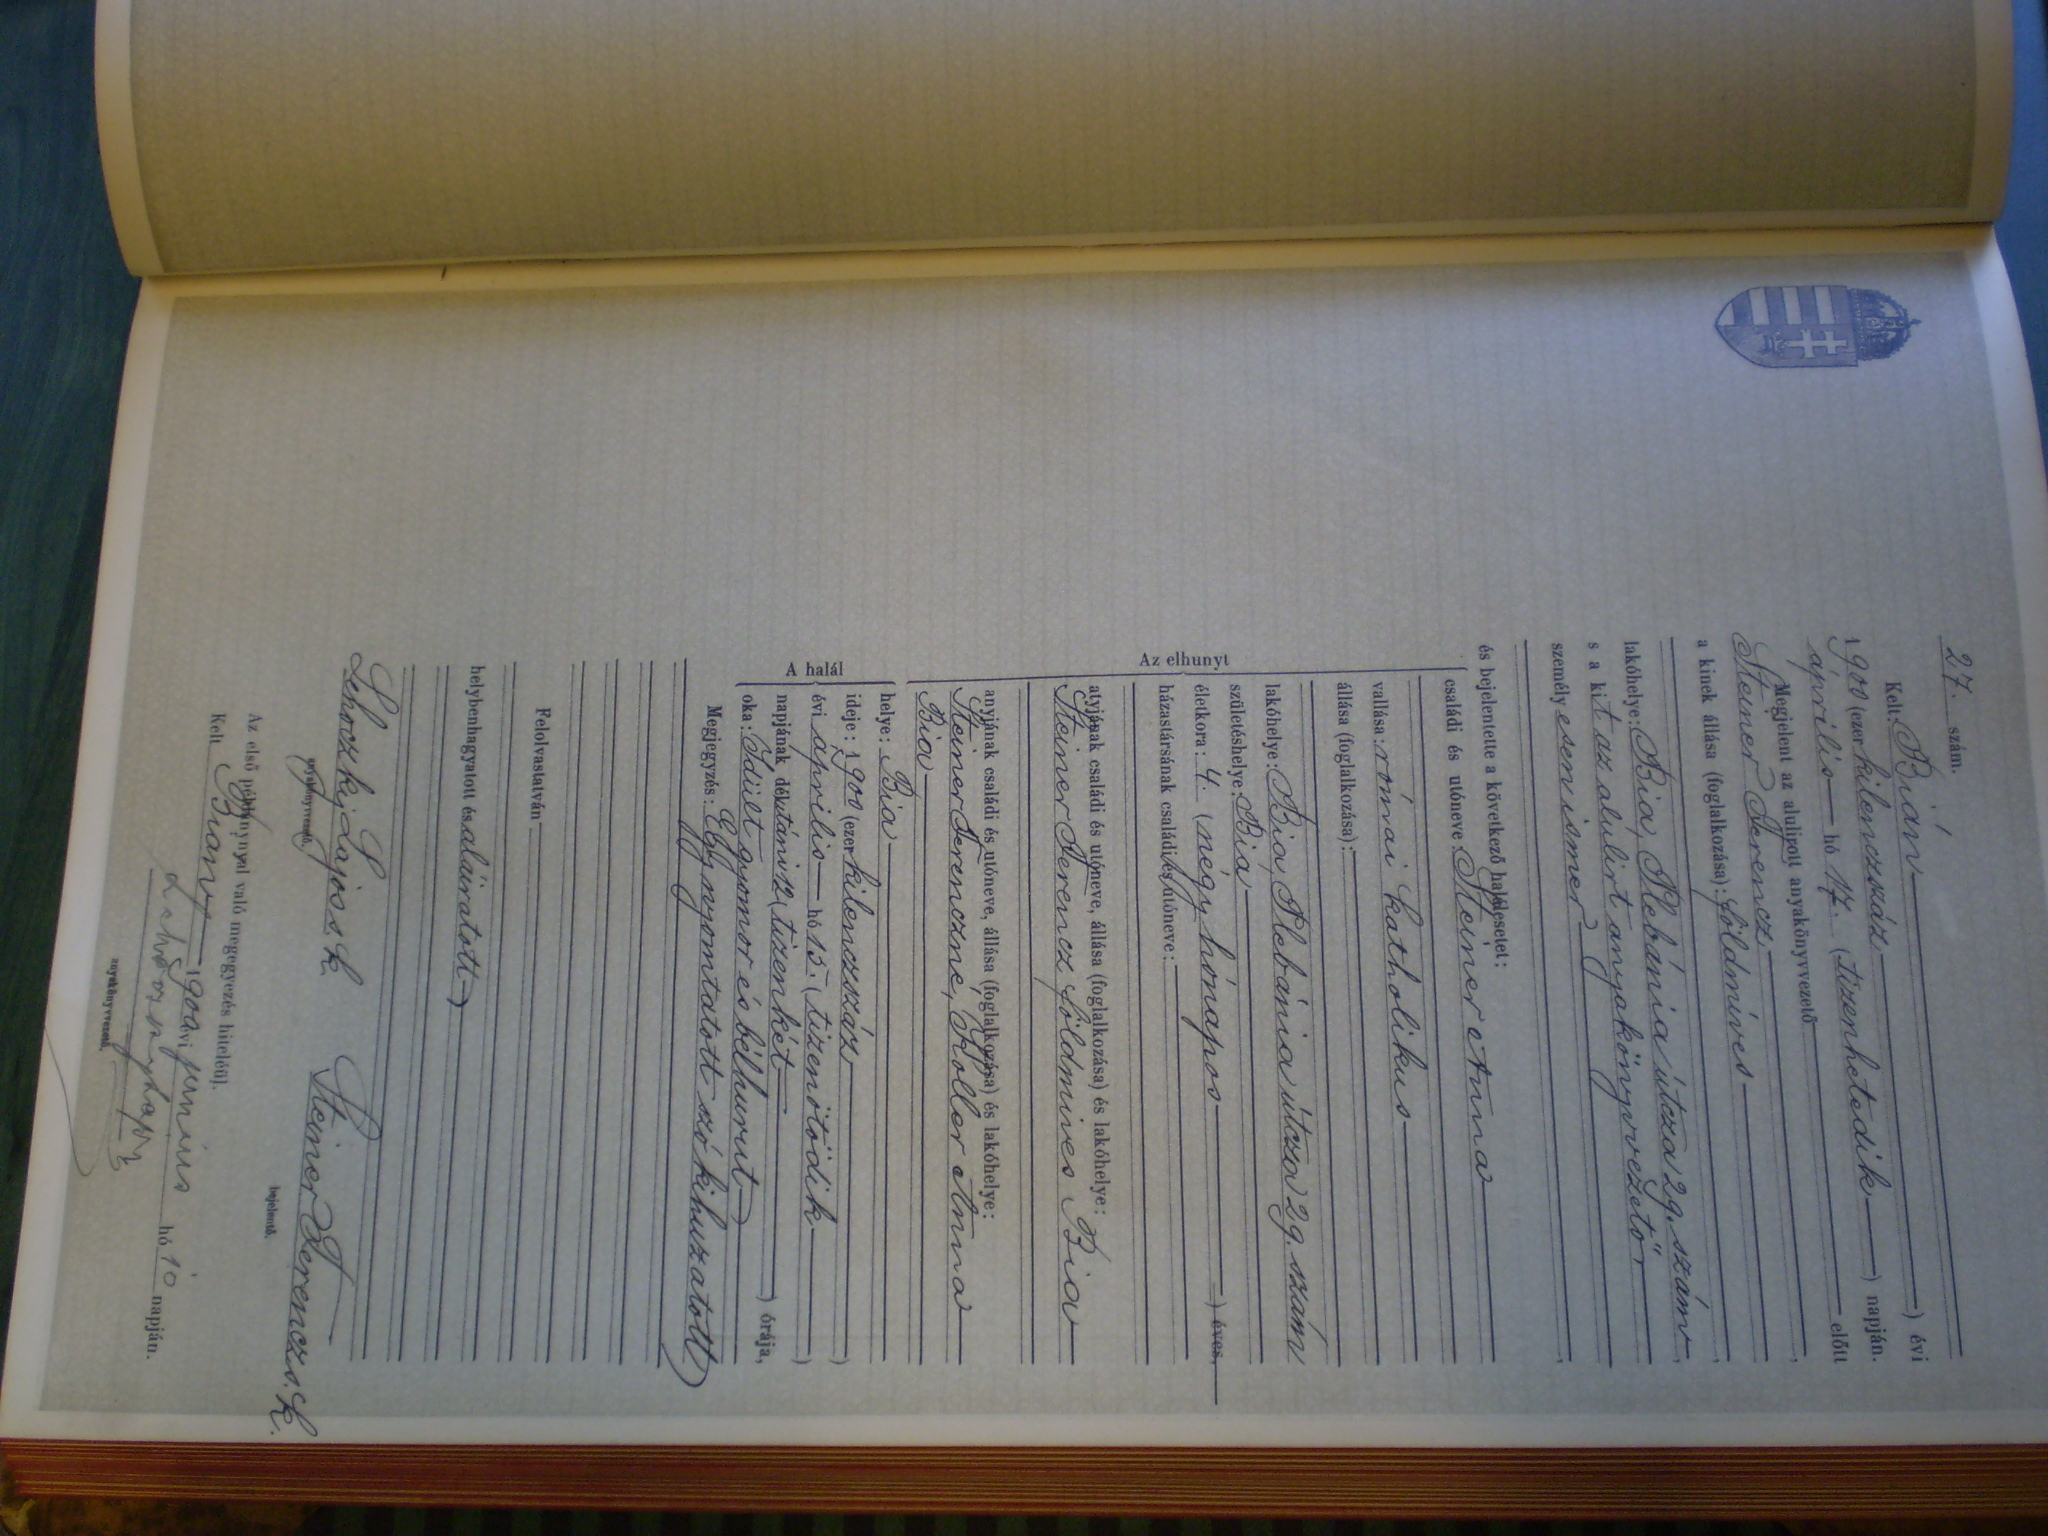 27. szám.
Kelt: Bián ) évi
1900 (ezer kilenczszáz
április hó 17. (tizenhetedik ) napján.
Megjelent az alulirott anyakönyvvezető előtt
Steiner Ferencz,
a kinek állása (foglalkozása): földmíves
lakóhelye: Bia, Plébánia útcza 29. szám,
s a kit az alulirt anyakönyvvezető
személyesen ismer,
és bejelentette a következő halálesetet:
Az elhunyt
családi és utóneve: Steiner Anna
vallása: római katholikus
állása (foglalkozása):
lakóhelye: Bia, Plebánia útcza 29. szám
születéshelye: Bia
életkora: 4. (négy hónapos ) éves,
házastársának családi és utóneve:
atyjának családi és utóneve, állása (foglalkozása) és lakóhelye:
Steiner Ferencz földmives Bia
anyjának családi és utóneve, állása (foglalkozása) és lakóhelye:
Steiner Ferenczné, Koller Anna
Bia
A halál
helye: Bia
ideje: 1900 (ezer kilenczszáz )
évi április hó 15. (tizenötödik )
napjának délutáni 12 (tizenkét ) órája,
oka: Idült gyomor és bélhurut
Megjegyzés: Egy nyomtatott szó kihuzatott
Felolvastatván
helybenhagyatott és aláiratott
Lehoczky Lajos s. k.
anyakönyvvezető.
Steiner Ferencz s. k.
bejelentő.
Az első példánynyal való megegyezés hiteléül.
Kelt Biány 1900 évi junius hó 10 napján.
anyakönyvvezető.